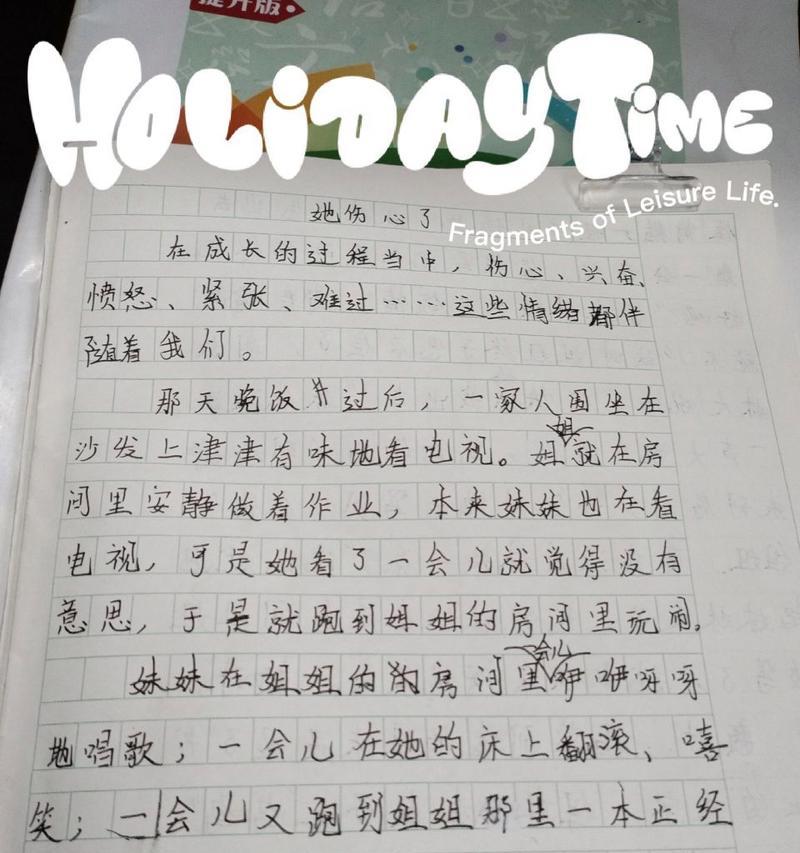 提升版
HOLiDAYTiME
Fragments of Leisure Life.
她伤心了
在成长的过程当中，伤心、兴奋、
愤怒、紧张、难过……这些情绪都伴
随着我们。
那天晚饭过后，一家人围坐在
沙发上津津有味地看电视。姐姐就在房
间里安静做着作业，本来妹妹也在看
电视，可是她看了一会儿就觉得没有
意思，于是就跑到姐姐的房间里玩闹。
妹妹在姐姐的房间里一会儿咿咿呀呀
地唱歌；一会儿在她的床上翻滚、嘻
笑；一会儿又跑到姐姐那里一本正经